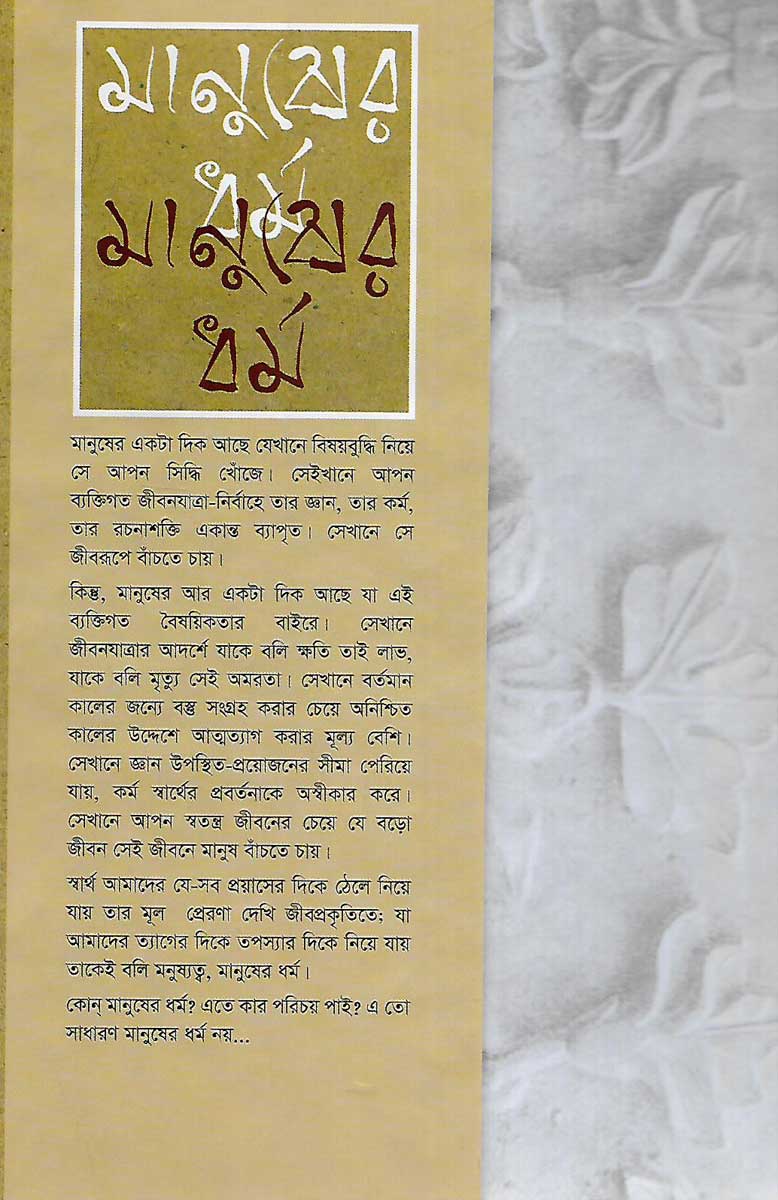 মানুষের
ধর্ম
মানুষের
ধর্ম
মানুষের একটা দিক আছে যেখানে বিষয়বুদ্ধি নিয়ে
সে আপন সিদ্ধি খোঁজে। সেইখানে আপন
ব্যক্তিগত জীবনযাত্রা-নির্বাহে তার জ্ঞান, তার কর্ম,
তার রচনাশক্তি একান্ত ব্যাপৃত। সেখানে সে
জীবরূপে বাঁচতে চায়।
কিন্তু, মানুষের আর একটা দিক আছে যা এই
ব্যক্তিগত বৈষয়িকতার বাইরে। সেখানে
জীবনযাত্রার আদর্শে যাকে বলি ক্ষতি তাই লাভ,
যাকে বলি মৃত্যু সেই অমরতা। সেখানে বর্তমান
কালের জন্যে বস্তু সংগ্রহ করার চেয়ে অনিশ্চিত
কালের উদ্দেশে আত্মত্যাগ করার মূল্য বেশি।
সেখানে জ্ঞান উপস্থিত-প্রয়োজনের সীমা পেরিয়ে
যায়, কর্ম স্বার্থের প্রবর্তনাকে অস্বীকার করে।
সেখানে আপন স্বতন্ত্র জীবনের চেয়ে যে বড়ো
জীবন সেই জীবনে মানুষ বাঁচতে চায়।
স্বার্থ আমাদের যে-সব প্রয়াসের দিকে ঠেলে নিয়ে
যায় তার মূল প্রেরণা দেখি জীবপ্রকৃতিতে; যা
আমাদের ত্যাগের দিকে তপস্যার দিকে নিয়ে যায়
তাকেই বলি মনুষ্যত্ব, মানুষের ধর্ম।
কোন্ মানুষের ধর্ম? এতে কার পরিচয় পাই? এ তো
সাধারণ মানুষের ধর্ম নয়...